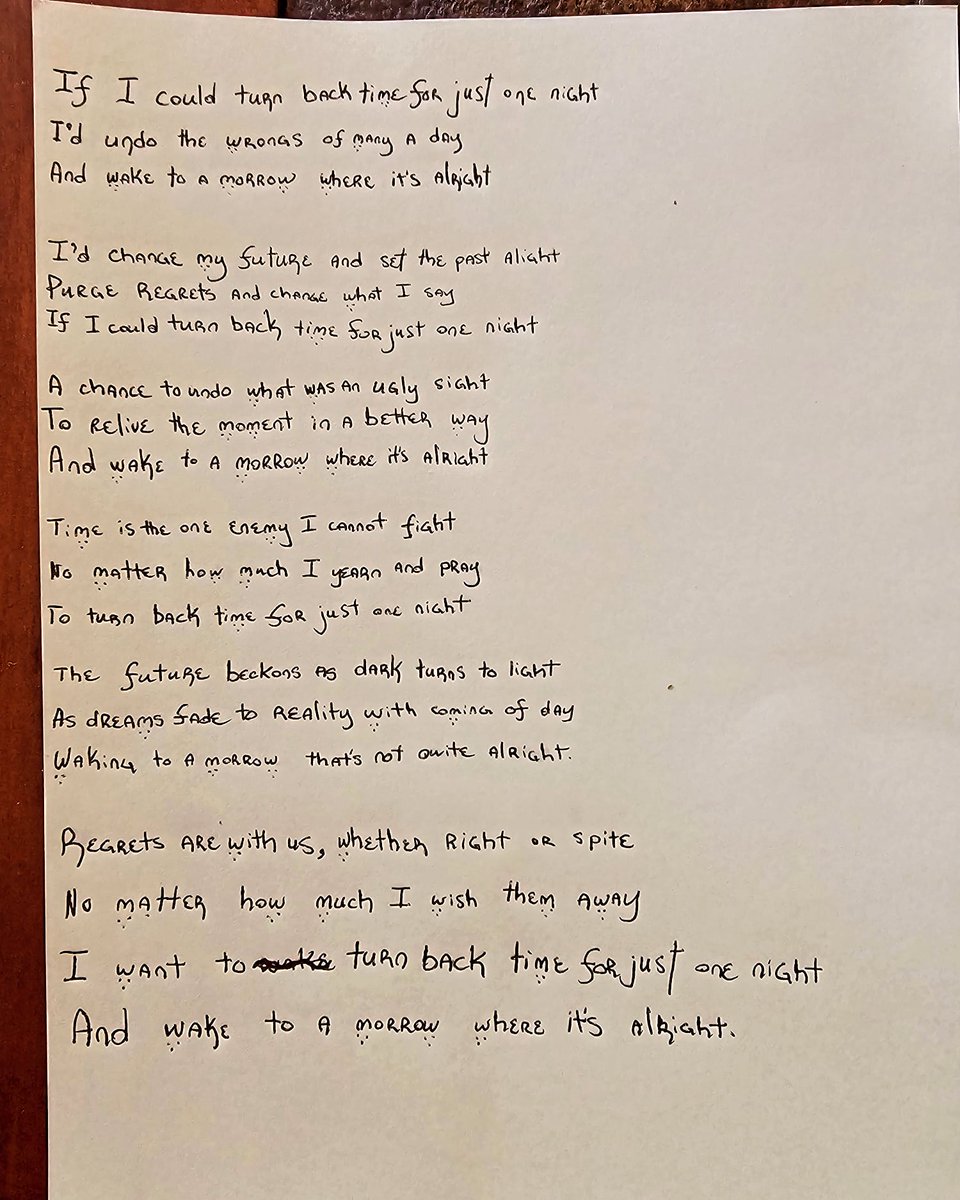 If I could turn back time for just one night
I'd undo the wrongs of many a day
And wake to a morrow where it's alright
I'd change my future and set the past alight
Purge regrets and change what I say
If I could turn back time for just one night
A chance to undo what was an ugly sight
To relive the moment in a better way
And wake to a morrow where it's alright
Time is the one enemy I cannot fight
No matter how much I yearn and pray
To turn back time for just one night
The future beckons as dark turns to light
As dreams fade to reality with coming of day
Waking to a morrow that's not quite alright.
Regrets are with us, whether right or spite
No matter how much I wish them away
I want to turn back time for just one night
And wake to a morrow where it's alright.